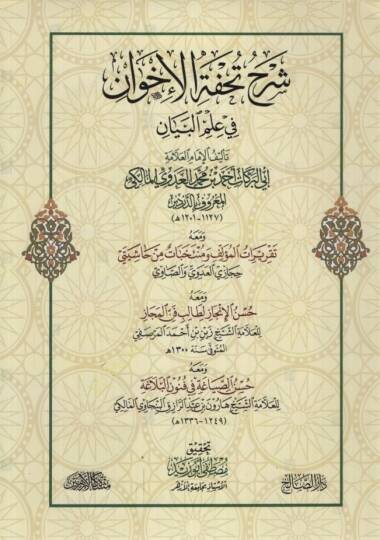 شرح تحفة الإخوان
في علم البيان
تأليف الإمام العلامة
أبي البركات أحمد بن محمد العدوي المالكي
المعروف بالدردير
(١١٢٧-١٢٠١هـ)
ومعه
تقريرات المؤلف ومنتخبات من حاشيتي
حجازي العدوي والصاوي
ومعه
حسن الإنجاز لطالب فن المجاز
للعلامة الشيخ زين بن أحمد المرصفي
المتوفى سنة ١٣٠٠هـ
ومعه
حسن الصياغة في فنون البلاغة
للعلامة الشيخ هارون بن عبد الرازق البنجاوي المالكي
(١٢٤٩-١٣٣٦هـ)
تحقيق
مصطفى أبو زيد
الأستاذ بجامعة الأزهر
دار الصالح